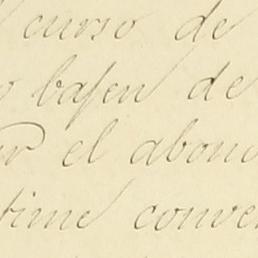 curso de
bajen de
el abon
time conve